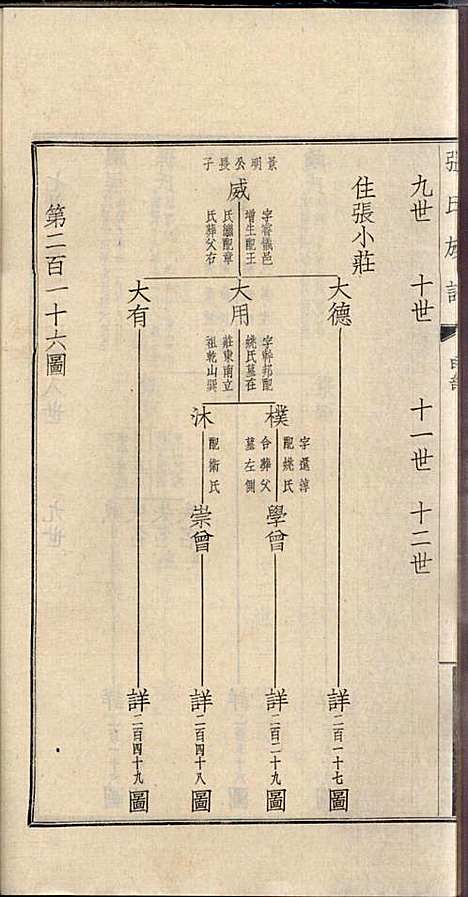 張氏族譜
九世　十世　十一世　十二世
住張小莊
景明公長子
威
字睿儀邑
增生配王
氏繼配章
氏葬父右
大德
詳二百一十七圖
大用
字幹邦配
姚氏墓在
莊東南立
祖乾山巽
樸
字還淳
配姚氏
合葬父
墓左側
學曾
詳二百二十九圖
沐
配衛氏
崇曾
詳二百四十八圖
大有
詳二百四十九圖
第二百一十六圖